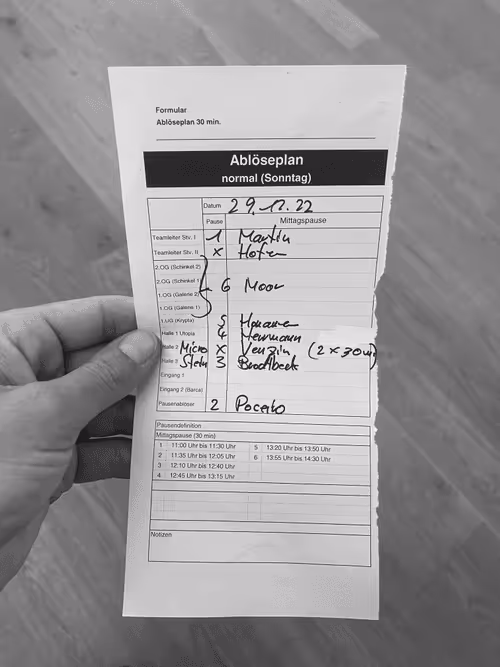 Formular
Ablöseplan 30 min.
Ablöseplan
normal (Sonntag)
Datum 29.12.22
Pause Mittagspause
Teamleiter Stv. I 1 Martin
Teamleiter Stv. II x Hofer
2.OG (Schinkel 2)
2.OG (Schinkel 1) 6 Moor
1.OG (Galerie 2)
1.OG (Galerie 1)
1.UG (Krypta) 5
Halle 1 Utopia 4 Herrmann
Halle 2 Micro x Venzin (2 x 30m)
Halle 3 Stein 3 Brodtbeck
Eingang 1
Eingang 2 (Barca)
Pausenablöser 2
Pausendefinition
Mittagspause (30 min)
1 11:00 Uhr bis 11:30 Uhr 5 13:20 Uhr bis 13:50 Uhr
2 11:35 Uhr bis 12:05 Uhr 6 13:55 Uhr bis 14:30 Uhr
3 12:10 Uhr bis 12:40 Uhr
4 12:45 Uhr bis 13:15 Uhr
Notizen